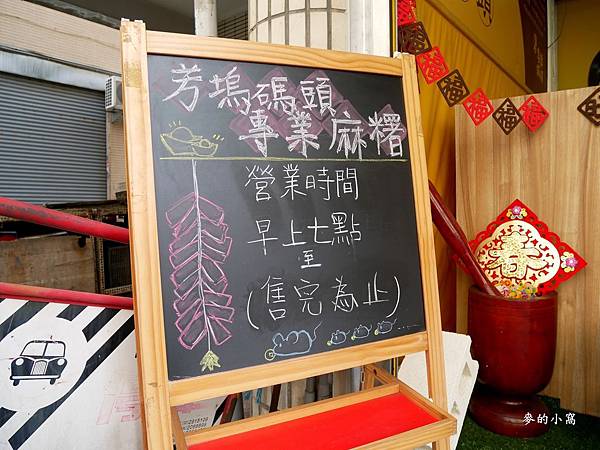 芳塢碼頭
專業麻糬
營業時間
早上七點
至
(售完為止)
春
麥的小窩